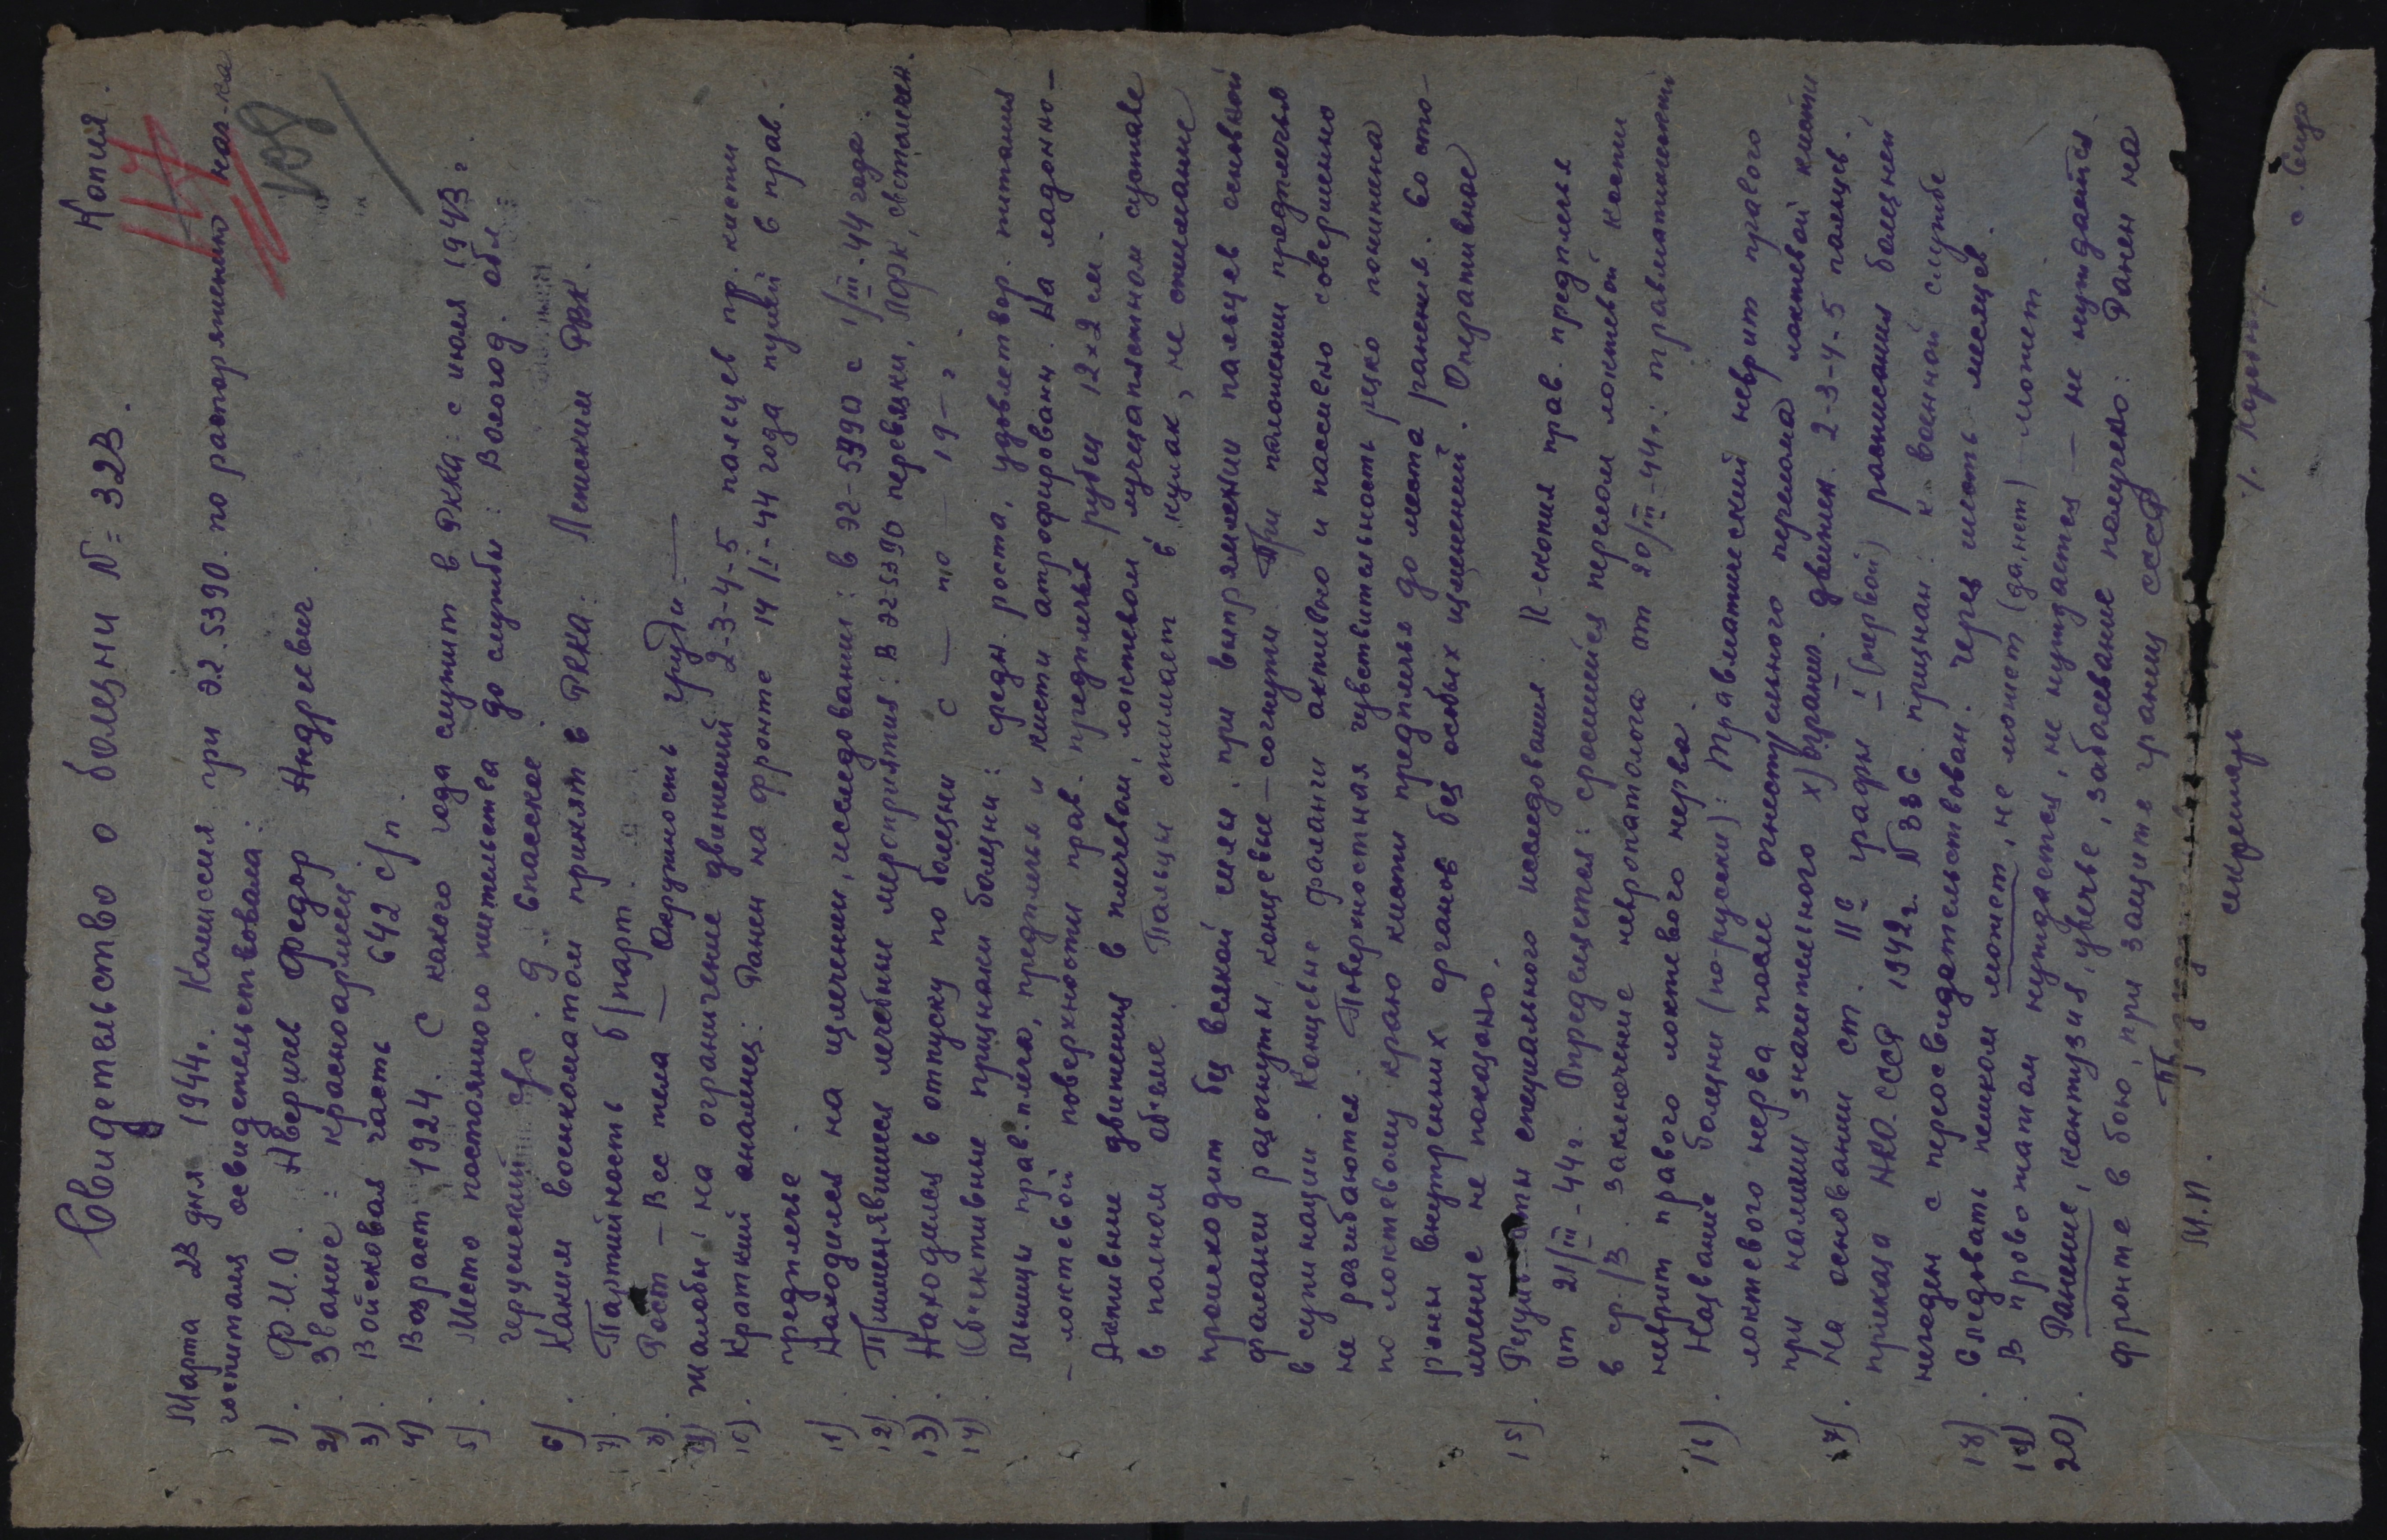 Копия.
117
109
Свидетельство о болезни № 323.
Марта 23 дня 1944г. Комиссия при Э.Г. 5390. по распоряжению нач-ка
госпиталя освидетельствовала:
1). Ф.И.О. Аверичев Федор Андреевич
2). Звание: красноармеец
3). Войсковая часть 642 с/п.
4). Возраст 1924. С какого года служит в РККА: с июля 1943 г.
5). Место постоянного жительства до службы: Вологод. обл.
с/с. д. Спасское.
6). Каким военкоматом принят в РККА: Ленским РВК.
7). Партийность б/парт.
8). Рост — Вес тела — Окружность груди: —
9) Жалобы: на ограничение движений 2-3-4-5 палецев пр. кисти
10). Краткий анамнез: Ранен на фронте 14/II-44 года пулей в прав.
предплечье.
11). Находился на излечении, исследовании: в ЭГ-5390 с 1/III-44 года
12). Применявшиеся лечебные мероприятия: В ЭГ 5390 перевязки, ЛФК, светолечен.
13). Находился в отпуску по болезни с — по — 19 — г.
14). Объективные признаки болезни: средн. роста, удовлетвор. питания
Мышцы прав. плеча, предплечья и кисти атрофированы. На ладонно-
- локтевой поверхности прав. предплечья рубец 12×2 см.
Активные движения в плечевом, локтевом, лучезапястном суставе
в полном объеме. Пальцы сжимает в кулак, не сжимание
происходит без всякой силы. при выпрямлении пальцев основной
фаланги разогнуты, концевые — согнуты. При положении предплечья
в супинации. Концевые фаланги активно и пассивно совершенно
не разгибаются. Поверхностная чувствительность резко понижена
по локтевому краю кисти предплечья до места ранения. Со сто-
роны внутренних органов без особых изменений. Оперативное
лечение не показано.
15). Результаты специального исследования. R-скопия прав. предплечья
от 21/III-44г. Определяется: сросшийся перелом локтевой кости
в ср./3. Заключение невропатолога от 20/III-44г.: травматический
неврит правого локтевого нерва.
16). Название болезни (по-русски): Травматический неврит правого
локтевого нерва после огнестрельного перелома локтевой кисти
при наличии значительного х) огранич. движен. 2-3-4-5 палецев.
17). На основании ст. 11в графы I (первой) расписания болезней
приказа НКО. СССР 1942г. № 336 признан: к военной службе
негоден с переосвидетельствован. через шесть месяцев.
18). Следовать пешком может, не может (да, нет) — может.
19). В провожатом нуждается, не нуждается — не нуждается.
20). Ранение, контузия, увечье, заболевание получено: Ранен на
фронте в бою, при защите границ СССР
М.П.
секретарь